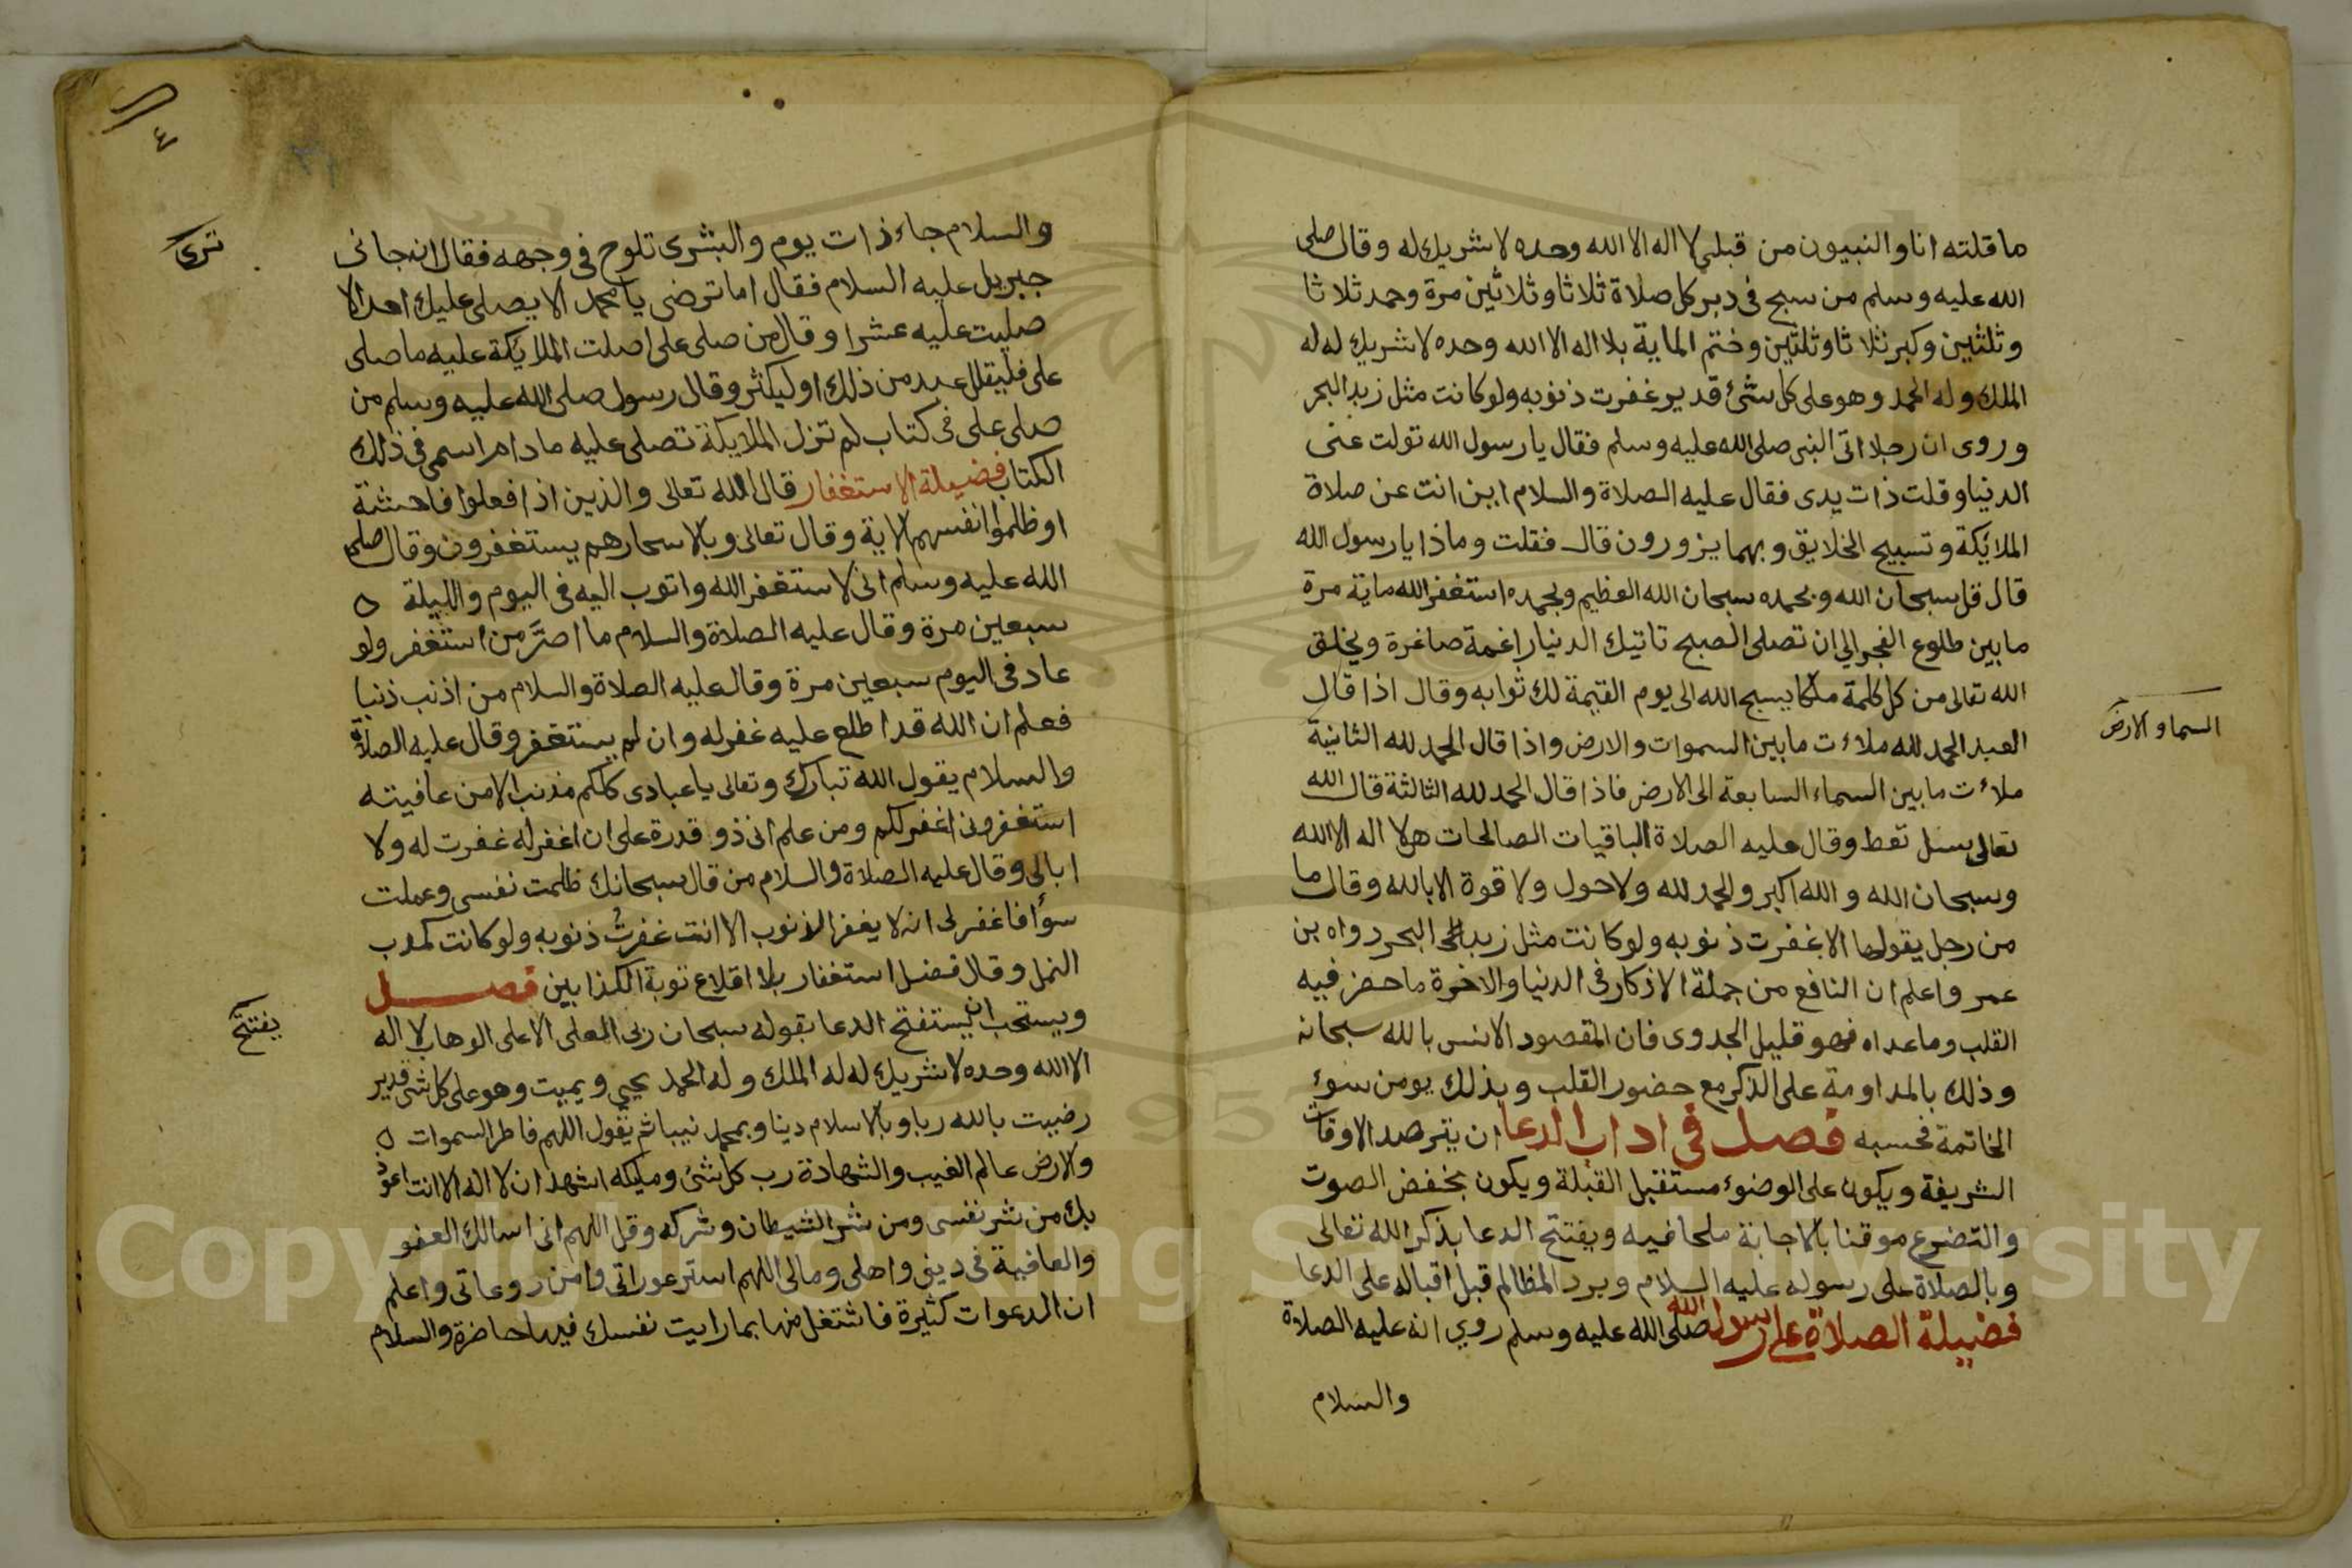 ما قلته انا والنبيون من قبلي لا اله الا الله وحده لا شريك له وقال صلى
الله عليه وسلم من سبح في دبر كل صلاة ثلاثا وثلاثين مرة وحمد ثلاثا
وثلثين وكبر ثلاثا وثلثين وختم الماية بلا اله الا الله وحده لا شريك له له
الملك وله الحمد وهو على كل شئ قدير غفرت ذنوبه ولو كانت مثل زبد البحر
وروى ان رجلا اتى النبى صلى الله عليه وسلم فقال يا رسول الله تولت عنى
الدنيا وقلت ذات يدى فقال عليه الصلاة والسلام اين انت عن صلاة
الملائكة وتسبيح الخلايق وبهما يزورون قال فقلت وماذا يا رسول الله
قال قل سبحان الله وبحمده سبحان الله العظيم وبحمده استغفر الله ماية مرة
ما بين طلوع الفجر الى ان تصلى الصبح تاتيك الدنيا راغمة صاغرة ويخلق
الله تعالى من كل كلمة ملكا يسبح الله الى يوم القيمة لك ثوابه وقال اذا قال
العبد الحمد لله ملاءت ما بين السموات والارض واذا قال الحمد لله الثانية
السما و الارض
ملاءت ما بين السماء السابعة الى الارض فاذا قال الحمد لله الثالثة قال الله
تعالى سل تعط وقال عليه الصلاة الباقيات الصالحات هن لا اله الا الله
وسبحان الله والله اكبر والحمد لله ولا حول ولا قوة الا بالله وقال ما
من رجل يقولها الا غفرت ذنوبه ولو كانت مثل زبد البحر رواه بن
عمر واعلم ان النافع من جملة الاذكار في الدنيا والاخرة ما حضر فيه
القلب وما عداه فهو قليل الجدوى فان المقصود الانس بالله سبحانه
وذلك بالمداومة على الذكر مع حضور القلب وبذلك يومن سوء
الخاتمة فحسبه فصل في اداب الدعا ان يترصد الاوقات
الشريفة ويكون على الوضوء مستقبل القبلة ويكون بخفض الصوت
والتضرع موقنا بالاجابة ملحا فيه ويفتتح الدعا بذكر الله تعالى
وبالصلاة على رسوله عليه السلام وبرد المظالم قبل اقباله على الدعا
فضيلة الصلاة على رسول الله صلى الله عليه وسلم روي انه عليه الصلاة
والسلام
٤
والسلام جاء ذات يوم والبشرى تلوح في وجهه فقال انه جانى
ترى
جبريل عليه السلام فقال اما ترضى يا محمد الا يصلى عليك احد الا
صليت عليه عشرا وقال من صلى على صلت الملائكة عليه ما صلى
على فليقلل عبد من ذلك او ليكثر وقال رسول صلى الله عليه وسلم من
صلى على فى كتاب لم تزل الملايكة تصلى عليه ما دام اسمى فى ذلك
الكتاب فضيلة الاستغفار قال الله تعالى والذين اذا فعلوا فاحشة
او ظلموا انفسهم الاية وقال تعالى وبالاسحار هم يستغفرون وقال صلى
الله عليه وسلم انى لاستغفر الله واتوب اليه فى اليوم والليلة
سبعين مرة وقال عليه الصلاة والسلام ما اصرّ من استغفر ولو
عاد فى اليوم سبعين مرة وقال عليه الصلاة والسلام من اذنب ذنبا
فعلم ان الله قد اطلع عليه غفر له وان لم يستغفر وقال عليه الصلاة
والسلام يقول الله تبارك وتعالى يا عبادى كلكم مذنب الا من عافيته
استغفرونى اغفر لكم ومن علم انى ذو قدرة على ان اغفر له غفرت له ولا
ابالى وقال عليه الصلاة والسلام من قال سبحانك ظلمت نفسى وعملت
سوأ فاغفر لى انه لا يغفر الذنوب الا انت غفرت ذنوبه ولو كانت كمدب
النمل وقال فضل استغفار بلا اقلاع توبة الكذابين فصل
ويستحب ان يستفتح الدعا بقوله سبحان ربى العلى الاعلى الوهاب لا اله
يفتتح
الا الله وحده لا شريك له له الملك وله الحمد يحيي ويميت وهو على كل شى قدير
رضيت بالله ربا وبالاسلام دينا وبمحمد نبيا ثم يقول اللهم فاطر السموات
والارض عالم الغيب والشهادة رب كل شئ ومليكه اشهد ان لا اله الا انت اعوذ
بك من شر نفسى ومن شر الشيطان وشركه وقل اللهم انى اسالك العفو
والعافية فى دينى واهلى ومالى اللهم استر عوراتى وامن روعاتى واعلم
ان الدعوات كثيرة فاشتغل منها بما رايت نفسك فيها حاضرة والسلام
Copyright © King Saud University